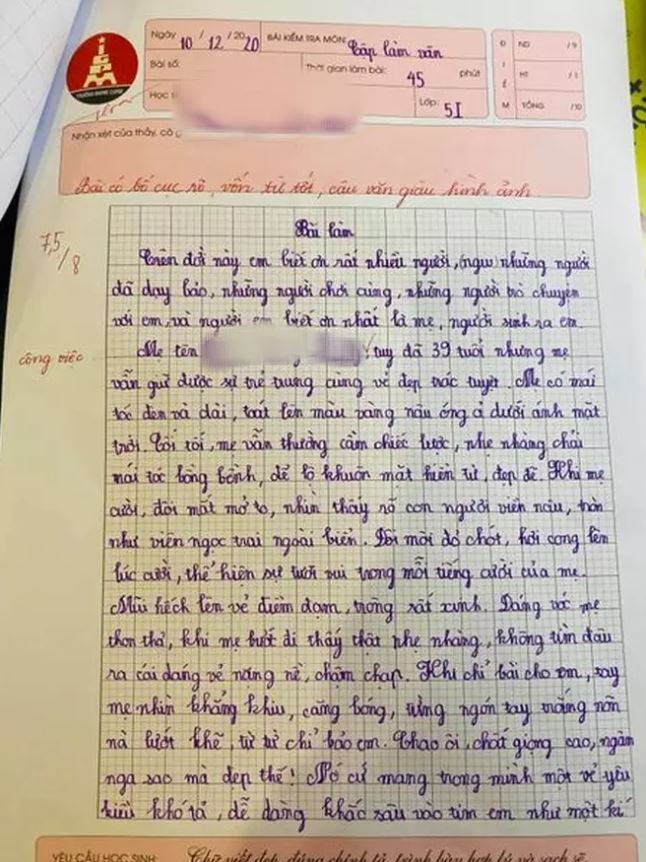 Ngày 10 / 12 / 2020 BÀI KIỂM TRA MÔN: Tập làm văn
Bài số: Thời gian làm bài: 45 phút
Học s Lớp: 5I
Đ I Ể M
ND /9
HT /1
TỔNG /10
Nhận xét của thầy, cô g
Bài có bố cục rõ, vốn từ tốt, câu văn giàu hình ảnh.
7,5/8
Bài làm
Trên đời này em biết ơn rất nhiều người, như những người
đã dạy bảo, những người chơi cùng, những người trò chuyện
với em, và người em biết ơn nhất là mẹ, người sinh ra em.
công việc
Mẹ tên tuy đã 39 tuổi nhưng mẹ
vẫn giữ được sự trẻ trung cùng vẻ đẹp trác tuyệt. Mẹ có mái
tóc đen và dài, toát lên màu vàng nâu óng ả dưới ánh mặt
trời. Tối tối, mẹ vẫn thường cầm chiếc lược, nhẹ nhàng chải
mái tóc bồng bềnh, để lộ khuôn mặt hiền từ, đẹp đẽ. Khi mẹ
cười, đôi mắt mở to, nhìn thấy rõ con người viền nâu, tròn
như viên ngọc trai ngoài biển. Đôi môi đỏ chót, hơi cong lên
lúc cười, thể hiện sự tươi vui trong mỗi tiếng cười của mẹ.
Mũi hếch lên vẻ điềm đạm, trông rất xinh. Dáng vóc mẹ
thon thả, khi mẹ bước đi thấy thật nhẹ nhàng, không tìm đâu
ra cái dáng vẻ nặng nề, chậm chạp. Khi chỉ bài cho em, tay
mẹ nhìn khẳng khiu, căng bóng, từng ngón tay trắng nõn
nà lướt khẽ, từ từ chỉ bảo em. Chao ôi, chất giọng cao, ngâm
nga sao mà đẹp thế! Nó cứ mang trong mình một vẻ yêu
kiều khó tả, dễ dàng khắc sâu vào tim em như một kí
YÊU CẦU HỌC SINH: Chữ viết đẹp, đúng chính tả, trình bày hợp lý và sạch sẽ